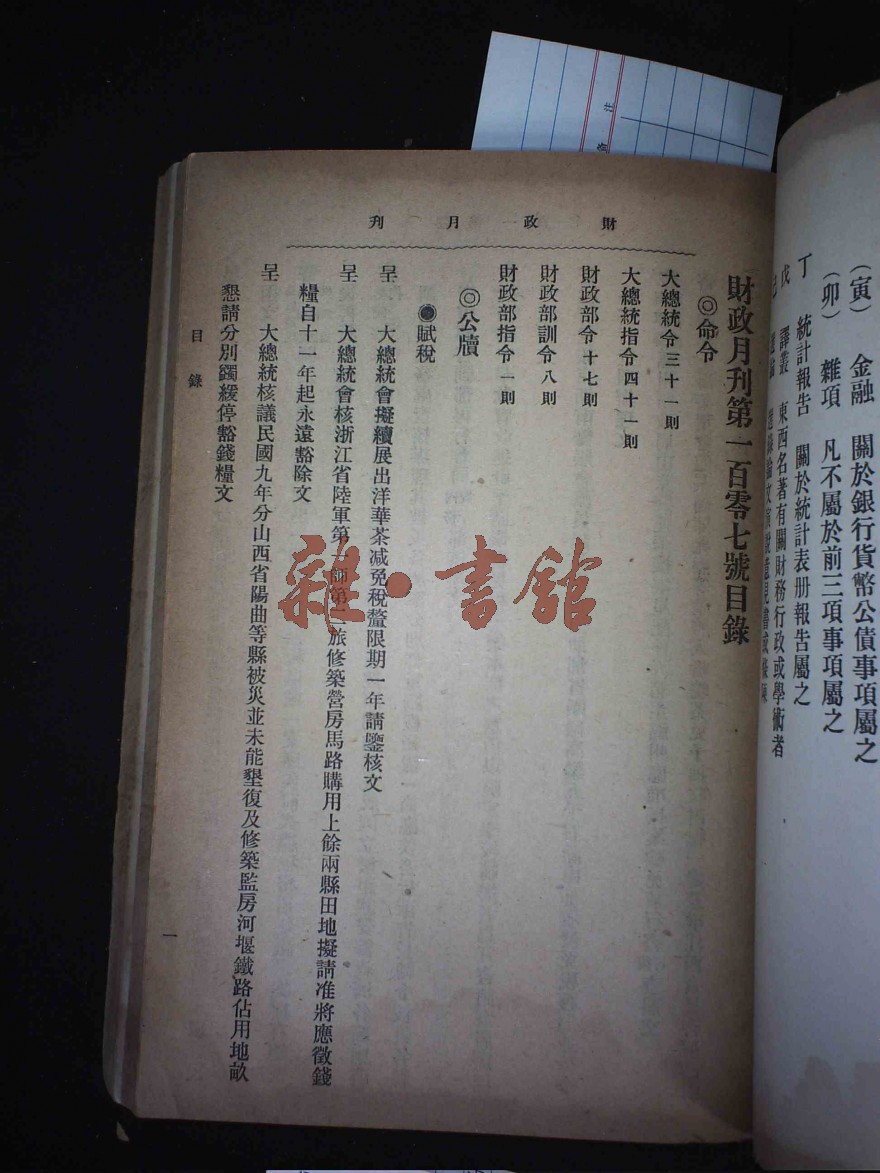 （寅）　金融　關於銀行貨幣公債事項屬之
（卯）　雜項　凡不屬於前三項事項屬之
丁　統計報告　關於統計表册報告屬之
戊　譯叢　東西名著有關財務行政或學術者
財政月刊
財政月刊第一百零七號目錄
◎命令
大總統令三十一則
大總統指令四十一則
財政部令十七則
財政部訓令八則
財政部指令一則
◎公牘
●賦稅
呈　大總統會擬續展出洋華茶減免稅釐限期一年請鑒核文
呈　大總統會核浙江省陸軍第一師第二旅修築營房馬路購用上餘兩縣田地擬請准將應徵錢
糧自十一年起永遠豁除文
呈　大總統核議民國九年分山西省陽曲等縣被災並未能墾復及修築監房河堰鐵路佔用地畝
懇請分別蠲緩停豁錢糧文
目錄
一
雜·書館